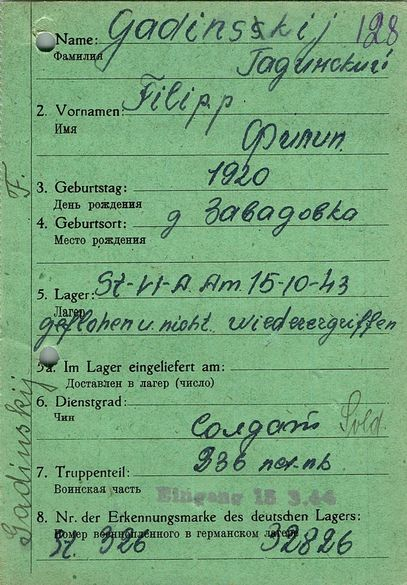 Name: Gadinsskij 128
Фамилия Гадинский
2. Vornamen: Filipp
Имя Филип.
3. Geburtstag: 1920
День рождения
4. Geburtsort: д Завадовка
Место рождения
5. Lager: St-VI-A. Am 15-10-43
Лагерь
geflohen u. nicht wiederergriffen
5a. Im Lager eingeliefert am:
Доставлен в лагерь (число)
6. Dienstgrad:
Чин Солдат Sold.
7. Truppenteil: 336
Воинская часть Eingang 15 3.44
8. Nr. der Erkennungsmarke des deutschen Lagers:
Номер военнопленного в германском лагере
St. 326 32826
Gadinskij F.